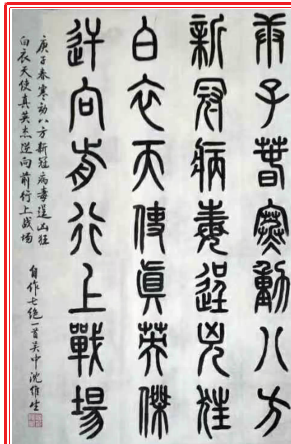 庚子春寒動八方
新冠病毒逞凶狂
白衣天使真英傑
逆向前行上戰場
庚子春寒动八方新冠病毒逞凶狂
白衣天使真英杰逆向前行上战场
自作七绝一首吴中沈维生